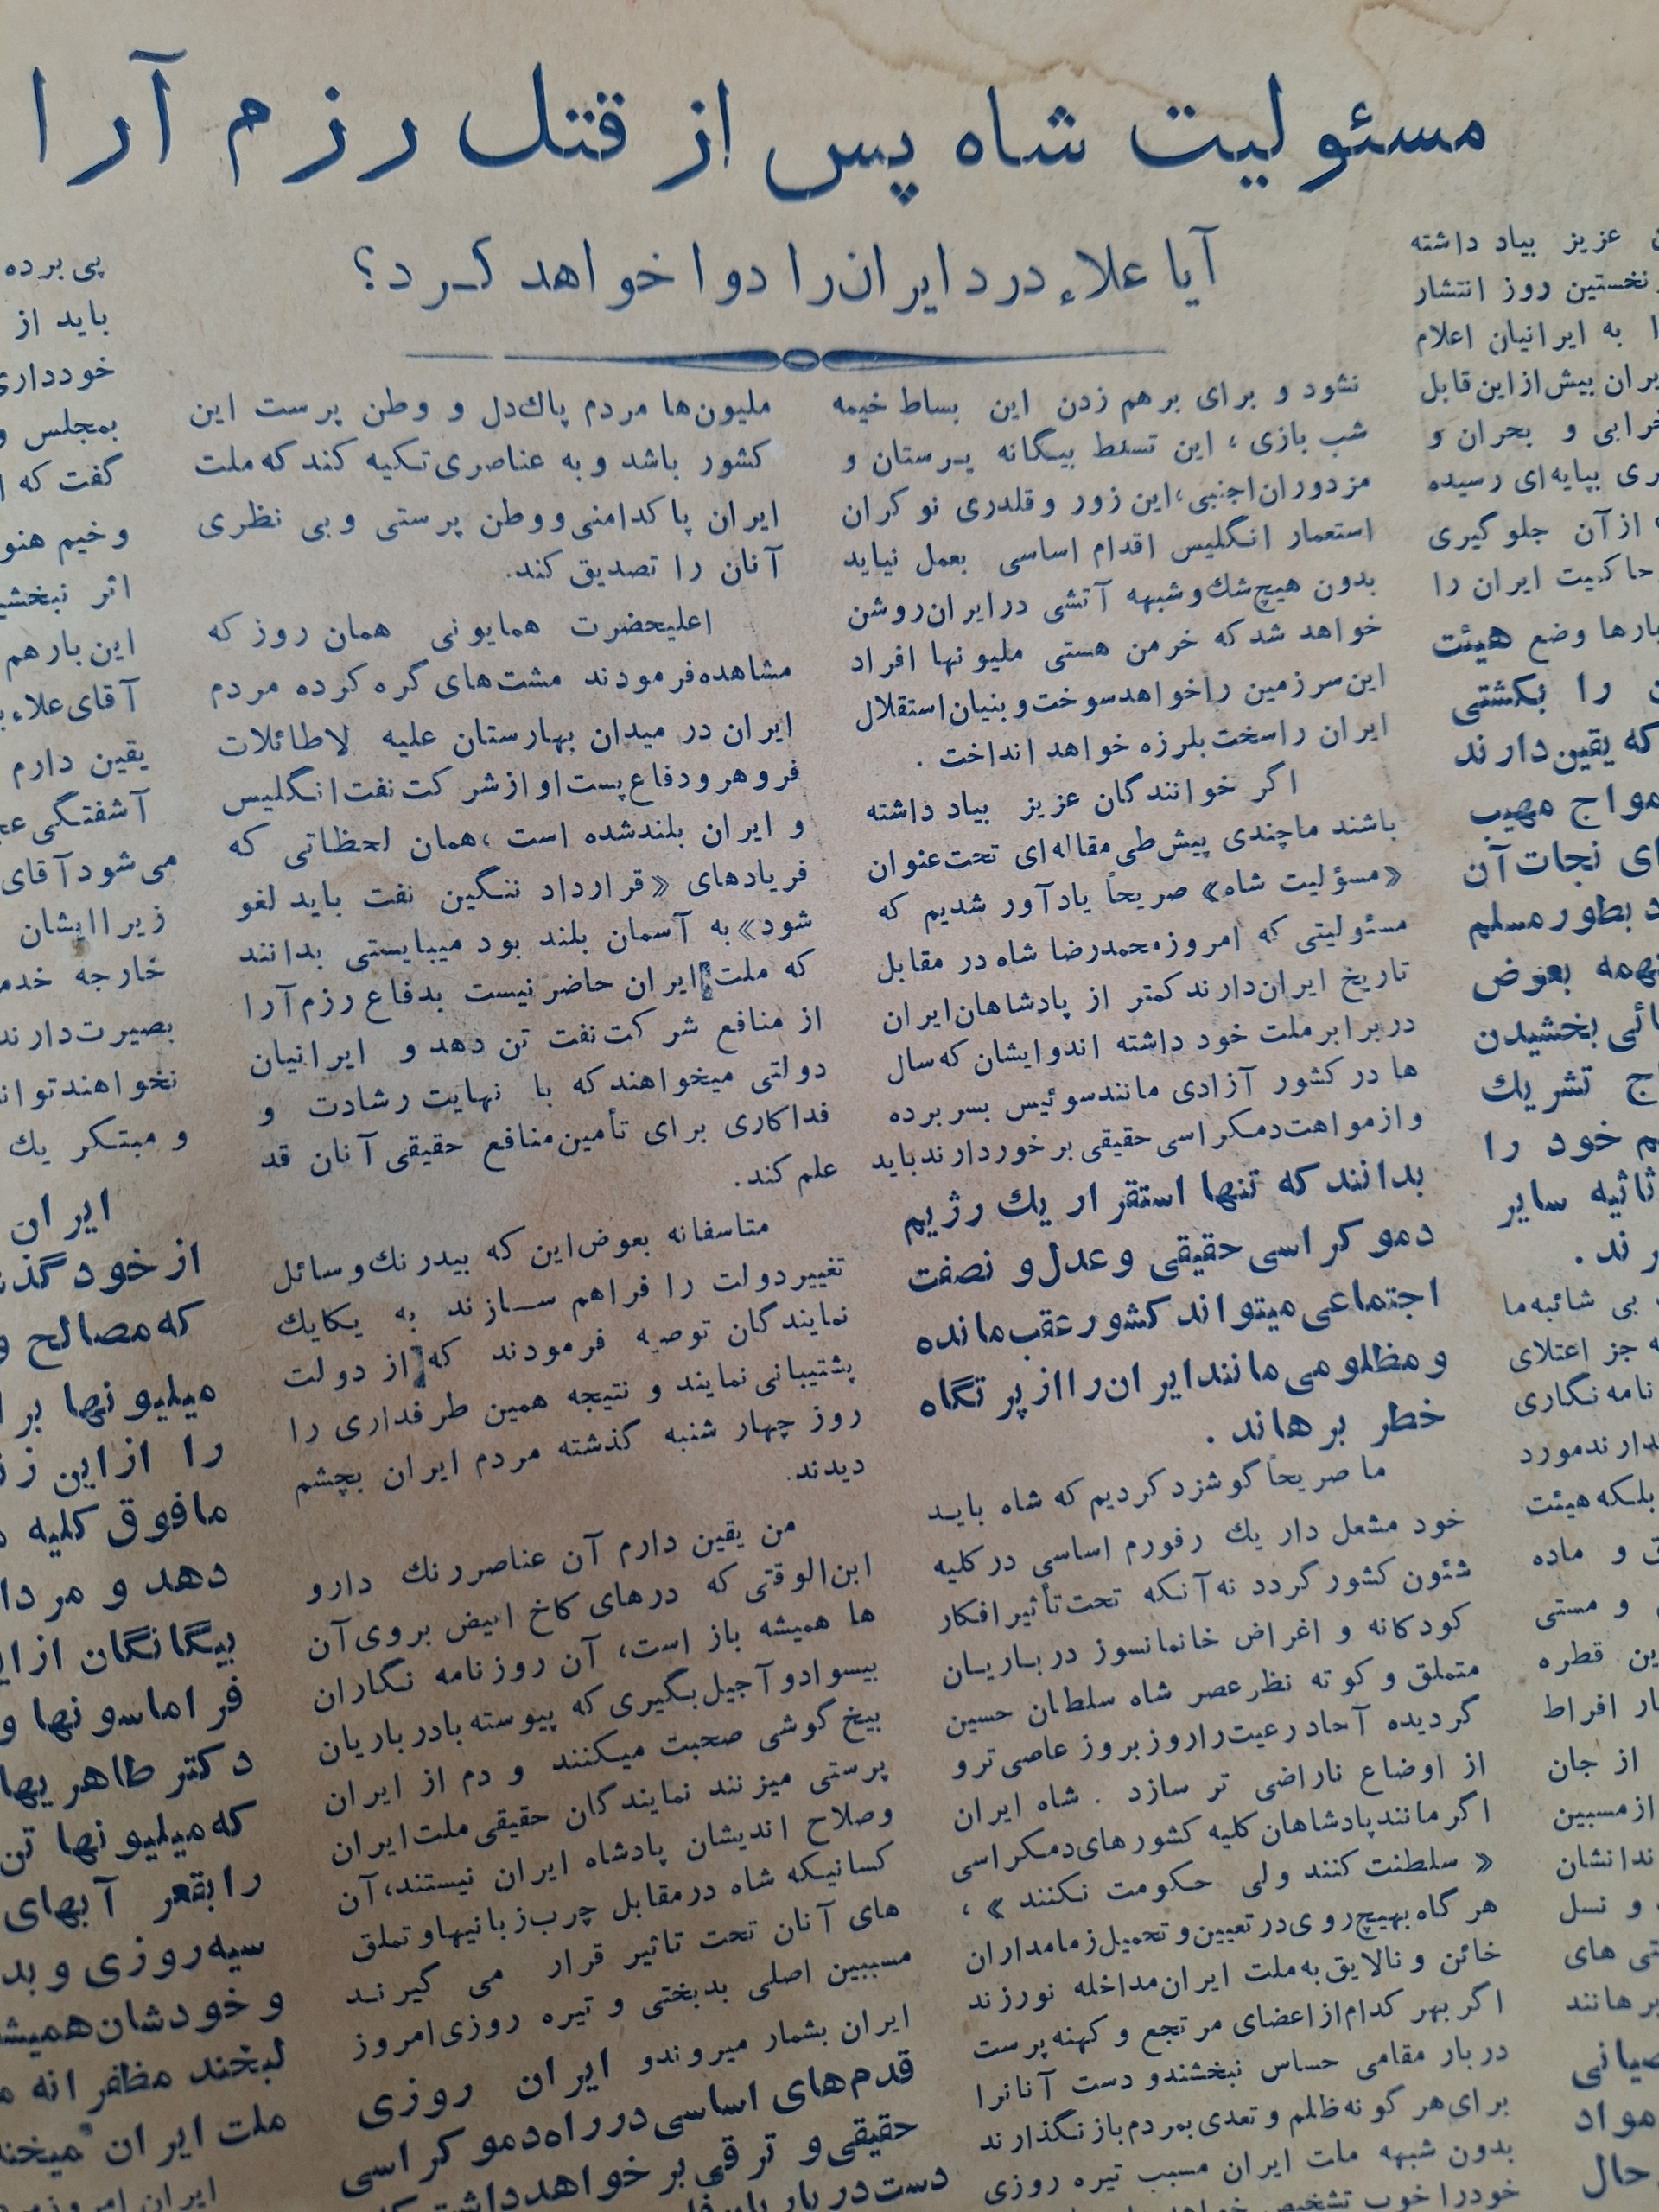 مسئولیت شاه پس از قتل رزم آرا
آیا علاء درد ایران را دوا خواهد کرد؟
عزیز بیاد داشته
نخستین روز انتشار
به ایرانیان اعلام
بیش از این قابل
خرابی و بحران و
بپایه‌ای رسیده
از آن جلو گیری
حاکمیت ایران را
بارها وضع هیئت
را بکشتی
که یقین دارند
امواج مهیب
نجات آن
بطور مسلم
بعوض
بخشیدن
تشریك
خود را
اثاثیه سایر
بی شائبه ما
جز اعتلای
نامه نگاری
بلکه هیئت
و ماده
و مستی
قطره
افراط
از جان
از مسببین
و نسل
برهانند
مواد
حال
نشود و برای برهم زدن این بساط خیمه
شب بازی ، این تسلط بیگانه پرستان و
مزدوران اجنبی ، این زور و قلدری نوکران
استعمار انگلیس اقدام اساسی بعمل نیاید
بدون هیچ شك و شبهه آتشی در ایران روشن
خواهد شد که خرمن هستی ملیونها افراد
این سرزمین را خواهد سوخت و بنیان استقلال
ایران را سخت بلرزه خواهد انداخت .
اگر خوانندگان عزیز بیاد داشته
باشند ما چندی پیش طی مقاله‌ای تحت عنوان
«مسؤلیت شاه» صریحاً یادآور شدیم که
مسئولیتی که امروز محمدرضا شاه در مقابل
تاریخ ایران دارند کمتر از پادشاهان ایران
در برابر ملت خود داشته اند و ایشان که سال
ها در کشور آزادی مانند سوئیس بسر برده
و از مواهت دمکراسی حقیقی برخوردارند باید
بدانند که تنها استقرار یك رژیم
دموکراسی حقیقی و عدل و نصفت
اجتماعی میتواند کشور عقب مانده
و مظلومی مانند ایران را از پرتگاه
خطر برهاند .
ما صریحاً گوشزد کردیم که شاه باید
خود مشعل دار یك رفورم اساسی در کلیه
شئون کشور گردد نه آنکه تحت تأثیر افکار
کودکانه و اغراض خانمانسوز درباریان
متملق و کوته نظر عصر شاه سلطان حسین
گردیده آحاد رعیت را روز بروز عاصی تر و
از اوضاع ناراضی تر سازد . شاه ایران
اگر مانند پادشاهان کلیه کشورهای دمکراسی
« سلطنت کنند ولی حکومت نکنند » ،
هر گاه بهیچ روی در تعیین و تحمیل زمامداران
خائن و نالایق به ملت ایران مداخله نورزند
اگر بهر کدام از اعضای مرتجع و کهنه پرست
دربار مقامی حساس نبخشند و دست آنانرا
برای هر گونه ظلم و تعدی بمردم باز نگذارند
بدون شبهه ملت ایران مسبب تیره روزی
خود را خوب تشخیص
ملیون‌ها مردم پاك‌دل و وطن پرست این
کشور باشد و به عناصری تکیه کند که ملت
ایران پاکدامنی و وطن پرستی و بی نظری
آنان را تصدیق کند.
اعلیحضرت همایونی همان روز که
مشاهده فرمودند مشت‌های گره کرده مردم
ایران در میدان بهارستان علیه لاطائلات
فروهر و دفاع پست او از شرکت نفت انگلیس
و ایران بلند شده است ، همان لحظاتی که
فریادهای «قرارداد ننگین نفت باید لغو
شود» به آسمان بلند بود میبایستی بدانند
که ملت ایران حاضر نیست بدفاع رزم آرا
از منافع شرکت نفت تن دهد و ایرانیان
دولتی میخواهند که با نهایت رشادت و
فداکاری برای تأمین منافع حقیقی آنان قد
علم کند.
متاسفانه بعوض این که بیدرنك وسائل
تغییر دولت را فراهم سازند به یکایك
نمایندگان توصیه فرمودند که از دولت
پشتیبانی نمایند و نتیجه همین طرفداری را
روز چهار شنبه گذشته مردم ایران بچشم
دیدند.
من یقین دارم آن عناصر رنك دار و
ابن الوقتی که درهای کاخ ابیض بروی آن
ها همیشه باز است، آن روزنامه نگاران
بیسواد و آجیل بگیری که پیوسته با درباریان
بیخ گوشی صحبت میکنند و دم از ایران
پرستی میزنند نمایندگان حقیقی ملت ایران
وصلاح اندیشان پادشاه ایران نیستند، آن
کسانیکه شاه در مقابل چرب زبانیها و تملق
های آنان تحت تاثیر قرار می گیرند
مسببین اصلی بدبختی و تیره روزی امروز
ایران بشمار میروند و ایران روزی
قدم‌های اساسی در راه دموکراسی
حقیقی و ترقی بر خواهد داشت
دست دربار
پی برده
باید از
خودداری
بمجلس و
گفت که
وخیم هنو
اثر نبخشی
این بار هم
آقای علاء
یقین دارم
آشفتگی
می شود آقای
زیرا ایشان
خارجه
بصیرت دارند
نخواهند
و مبتکر یك
ایران
از خود
که مصالح و
میلیونها بر
را از این
مافوق کلیه
دهد و
بیگانگان از
فراماسونها و
دکتر طاهریها
که میلیونها تن
را بقعر آبهای
سیه روزی و
و خودشان همیشه
لبخند مظفرانه
ملت ایران
ایران امروز